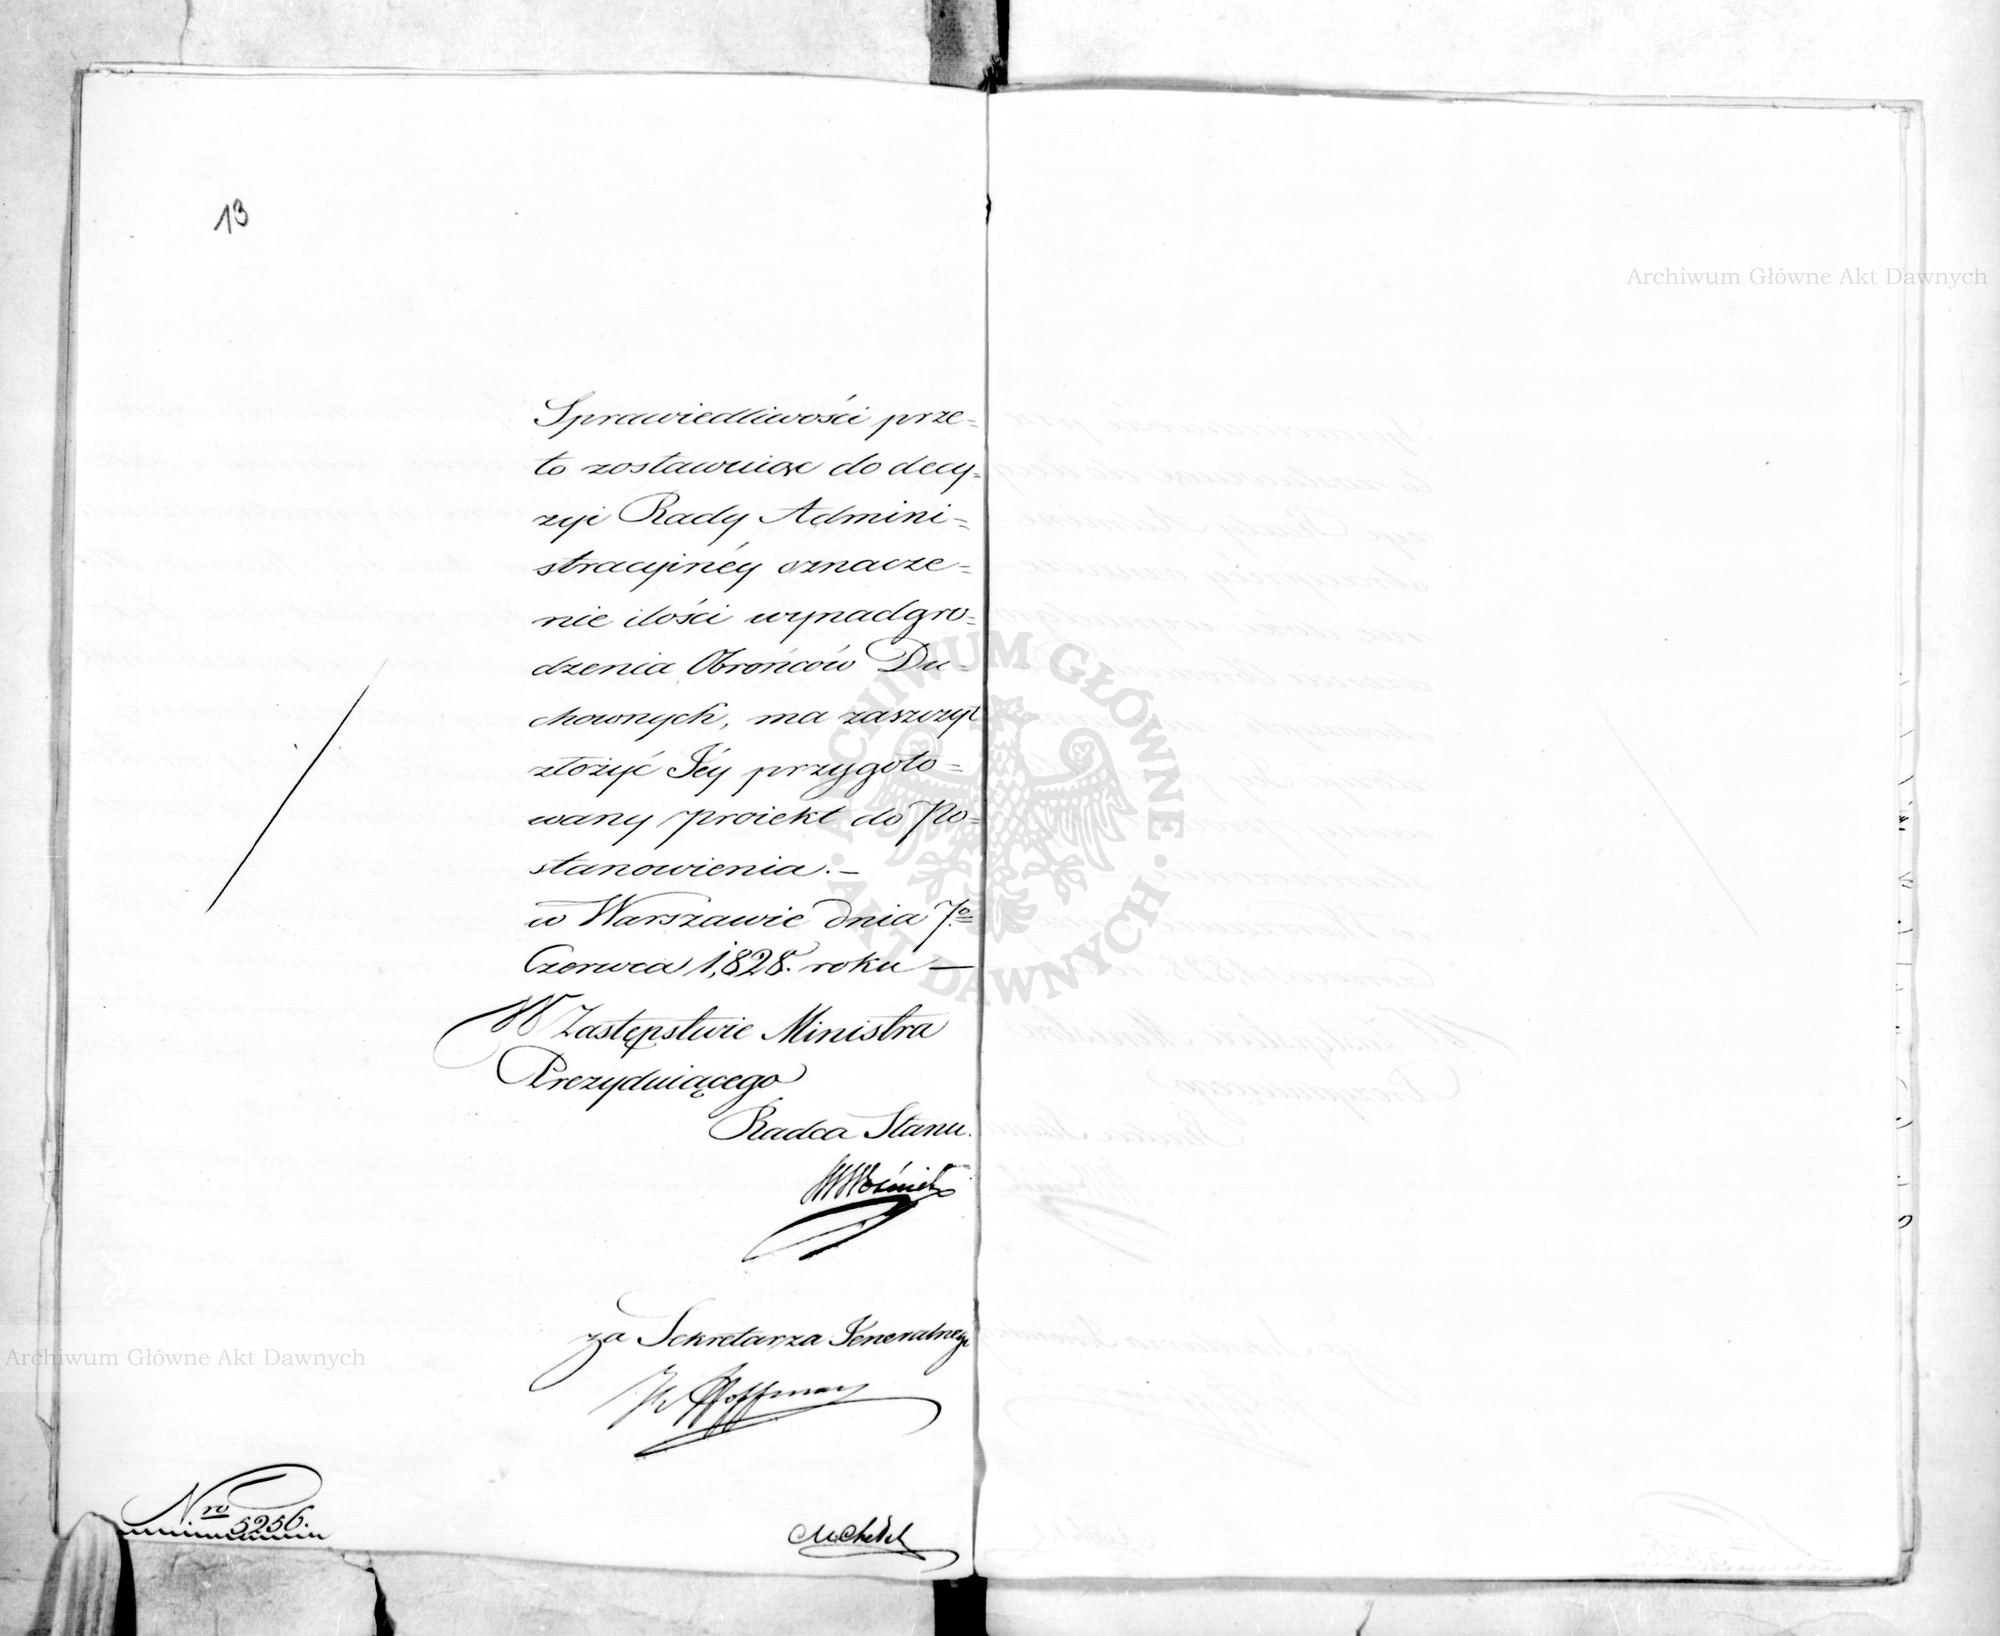 13
Sprawiedliwości prze=
to zostawuiąc do decy=
zyi Rady Admini=
stracyinéy oznacze=
nie ilości wynadgro=
dzenia Obrońców Du=
chownych, ma zaszczyt
złożyć Jéy przygoto=
wany proiekt do Po=
stanowienia.—
w Warszawie dnia 7.º
Czerwca 1,828. roku —
W Zastępstwie Ministra
Prezyduiącego
Radca Stanu.
Woźnicki
za Sekretarza Jeneralnego
Hoffman
Nro 5256.
Archiwum Główne Akt Dawnych
Archiwum Główne Akt Dawnych
ARCHIWUM GŁÓWNE · AKT DAWNYCH ·